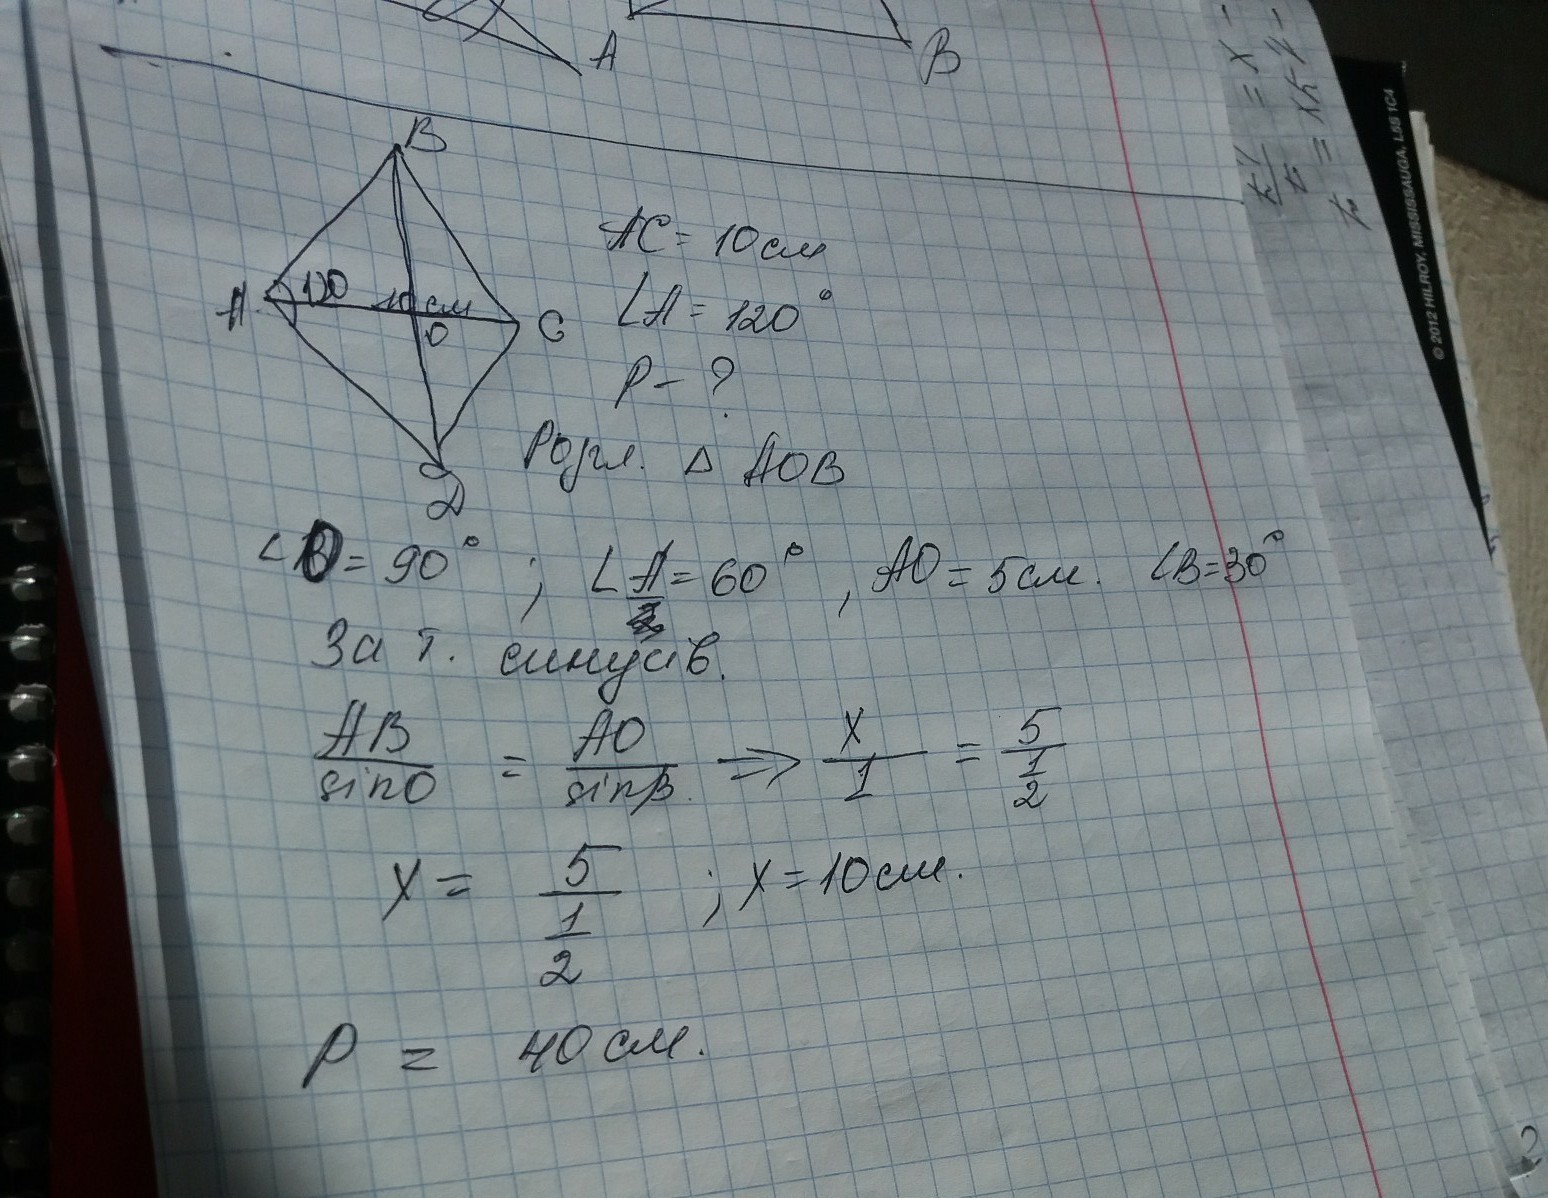 A
B
B
A
120
10 см
O
C
D
AC = 10 см
∠A = 120°
P - ?
Розгл. Δ AOB
∠O = 90° ; ∠A = 60° , AO = 5 см. ∠B = 30°
За т. синусів.
AB/sinO = AO/sinβ. => x/1 = 5/(1/2)
x = 5/(1/2) ; x = 10 см.
P = 40 см.
© 2012 HILROY, MISSISSAUGA, L5S 1C4